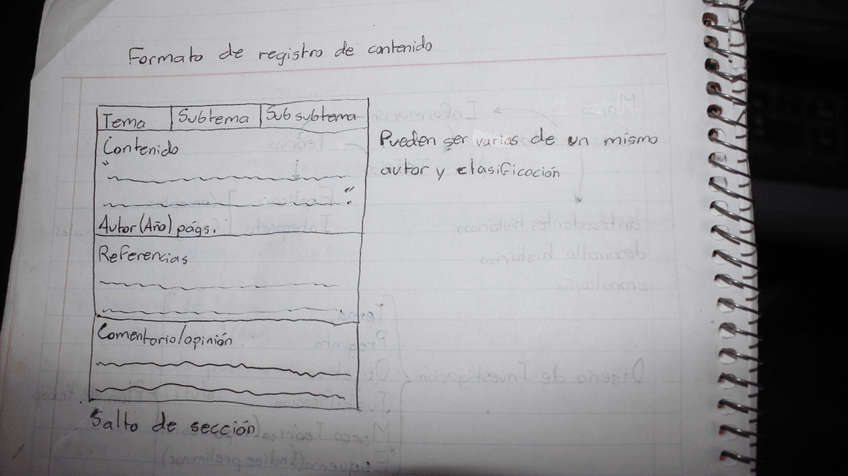 Formato de registro de contenido
Tema Subtema Subsubtema
Contenido
Pueden ser varias de un mismo
autor y clasificación
Autor (Año) págs.
Referencias
Comentario/opinión
Salto de sección